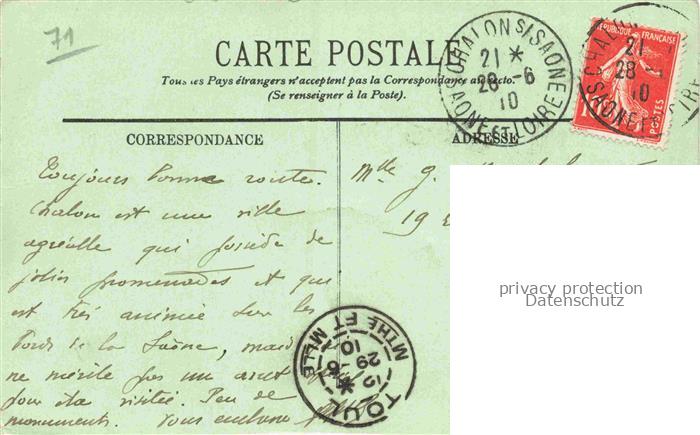 71
CARTE POSTALE
Tous les Pays étrangers n'acceptent pas la Correspondance au recto.
(Se renseigner à la Poste).
CHALON S/SAONE
21 *
28 -6
10
SAONE ET LOIRE
REPUBLIQUE FRANÇAISE
POSTES
10
CHALON
21
28 -
10
SAONE ET LOIRE
CORRESPONDANCE
ADRESSE
Toujours bonne route.
Chalon est une ville
agréable qui possède de
jolies promenades et qui
est très animée sur les
bords de la Saône, mais
ne mérite pas un arrêt
pour être visitée. Peu de
monuments. Vous embrasse
Mlle G.
19
TOUL
12 *
29 -6
10
MTHE ET MLLE
privacy protection
Datenschutz